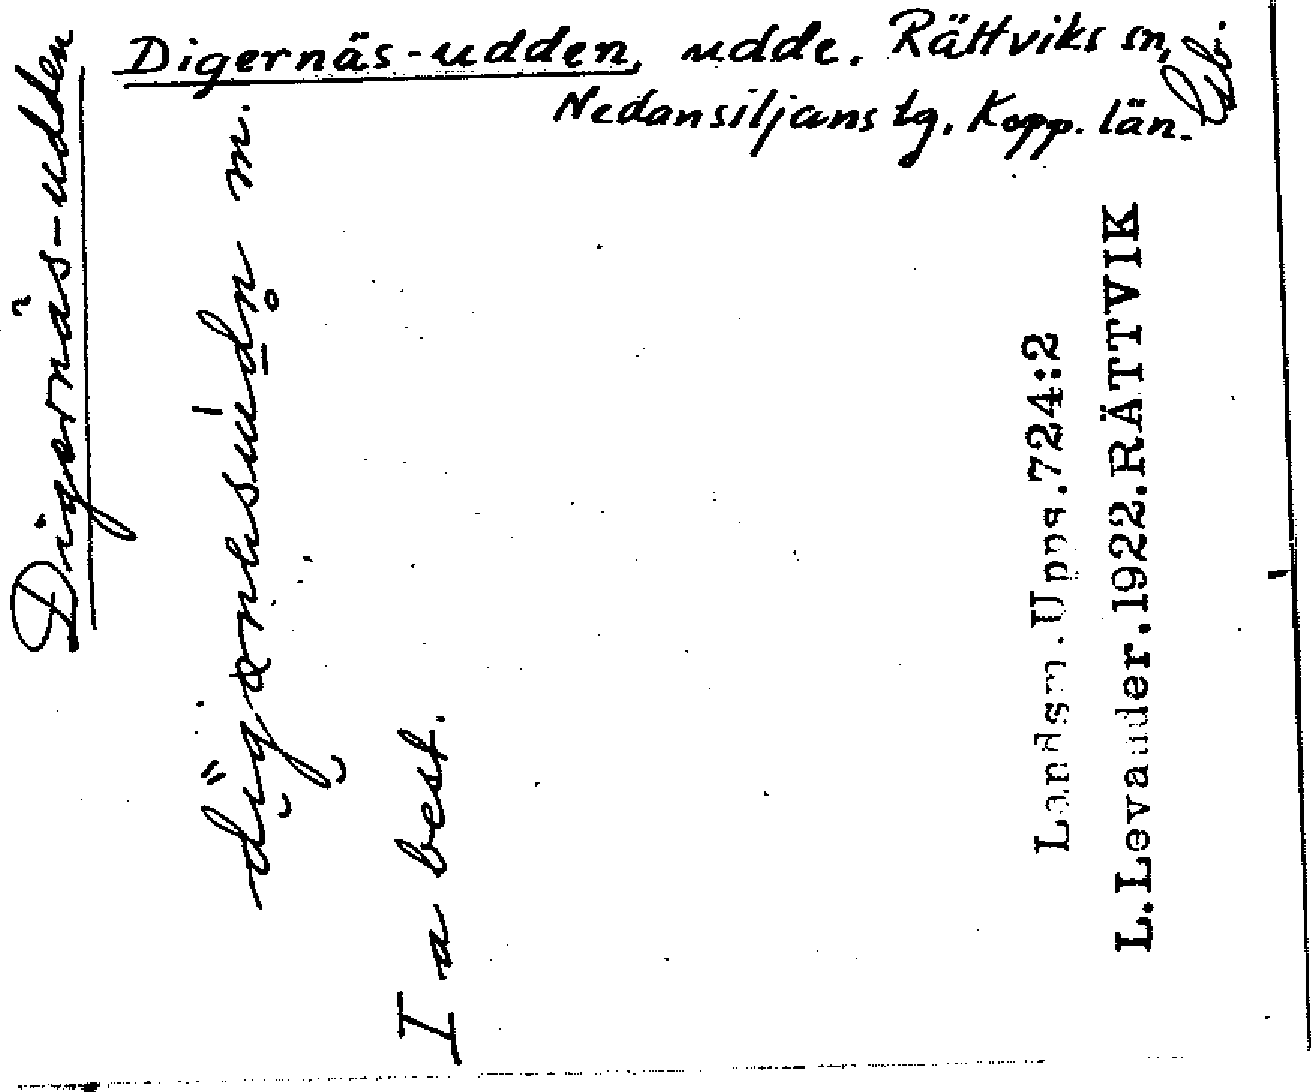 Digernäs-udden, udde. Rättviks sn,
Nedansiljans tg. Kopp. län.
Digernäs-udden
I a best.
Landsm.Upps.724:2
L.Levander.1922.RÄTTVIK